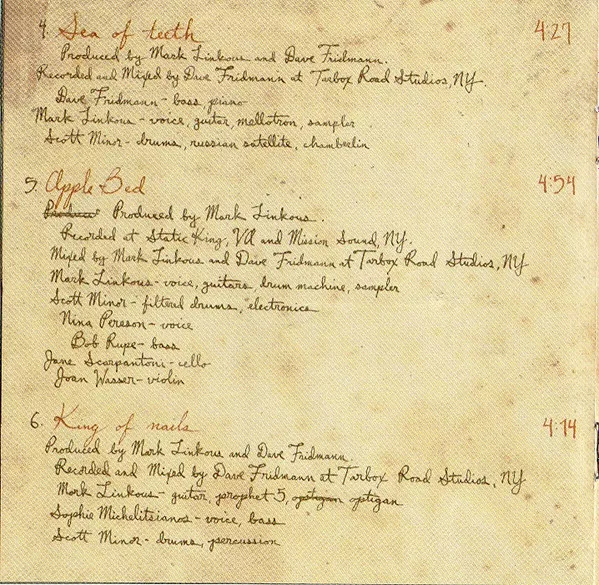 4. Sea of teeth 4:27
Produced by Mark Linkous and Dave Fridmann.
Recorded and Mixed by Dave Fridmann at Tarbox Road Studios, NY.
Dave Fridmann - bass, piano
Mark Linkous - voice, guitar, mellotron, sampler
Scott Minor - drums, russian satellite, chamberlin
5. Apple Bed 4:54
Producer Produced by Mark Linkous.
Recorded at Static King, VA and Mission Sound, NY.
Mixed by Mark Linkous and Dave Fridmann at Tarbox Road Studios, NY
Mark Linkous - voice, guitars, drum machine, sampler
Scott Minor - filtered drums, electronics
Nina Persson - voice
Bob Rupe - bass
Jane Scarpantoni - cello
Joan Wasser - violin
6. King of nails 4:14
Produced by Mark Linkous and Dave Fridmann.
Recorded and Mixed by Dave Fridmann at Tarbox Road Studios, NY
Mark Linkous - guitar, prophet 5, optigan optigan
Sophie Michelitsianos - voice, bass
Scott Minor - drums, percussion